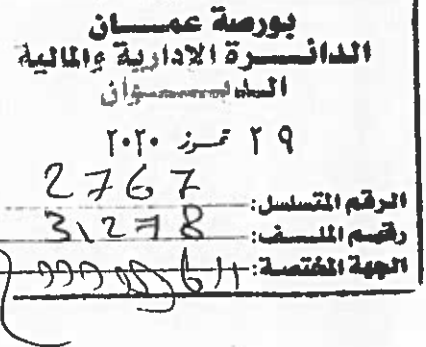 بورصة عمـــان
الدائـــرة الادارية والمالية
الديـــوان
٢٩ تمـوز ٢٠٢٠
الرقم المتسلسل: 2767
رقـم الملـــف: 31278
الجهة المختصـة: